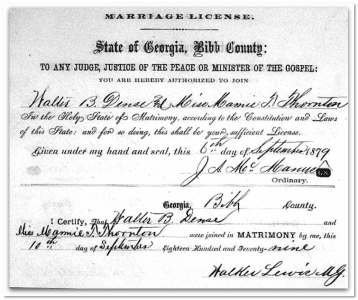 MARRIAGE LICENSE.
State of Georgia, Bibb County:
TO ANY JUDGE, JUSTICE OF THE PEACE OR MINISTER OF THE GOSPEL:
YOU ARE HEREBY AUTHORIZED TO JOIN
Walter B. Dense and Miss Mamie T. Thornton
In the Holy State of Matrimony, according to the Constitution and Laws
of this State; and for so doing, this shall be your sufficient License.
Given under my hand and seal, this 6th day of September 1879
J. A. McManus L.S.
Ordinary.
Georgia, Bibb County.
I Certify, That Walter B. Dense and
Miss Mamie T. Thornton were joined in MATRIMONY by me, this
10th day of September Eighteen Hundred and Seventy-nine
Walker Lewis M.G.